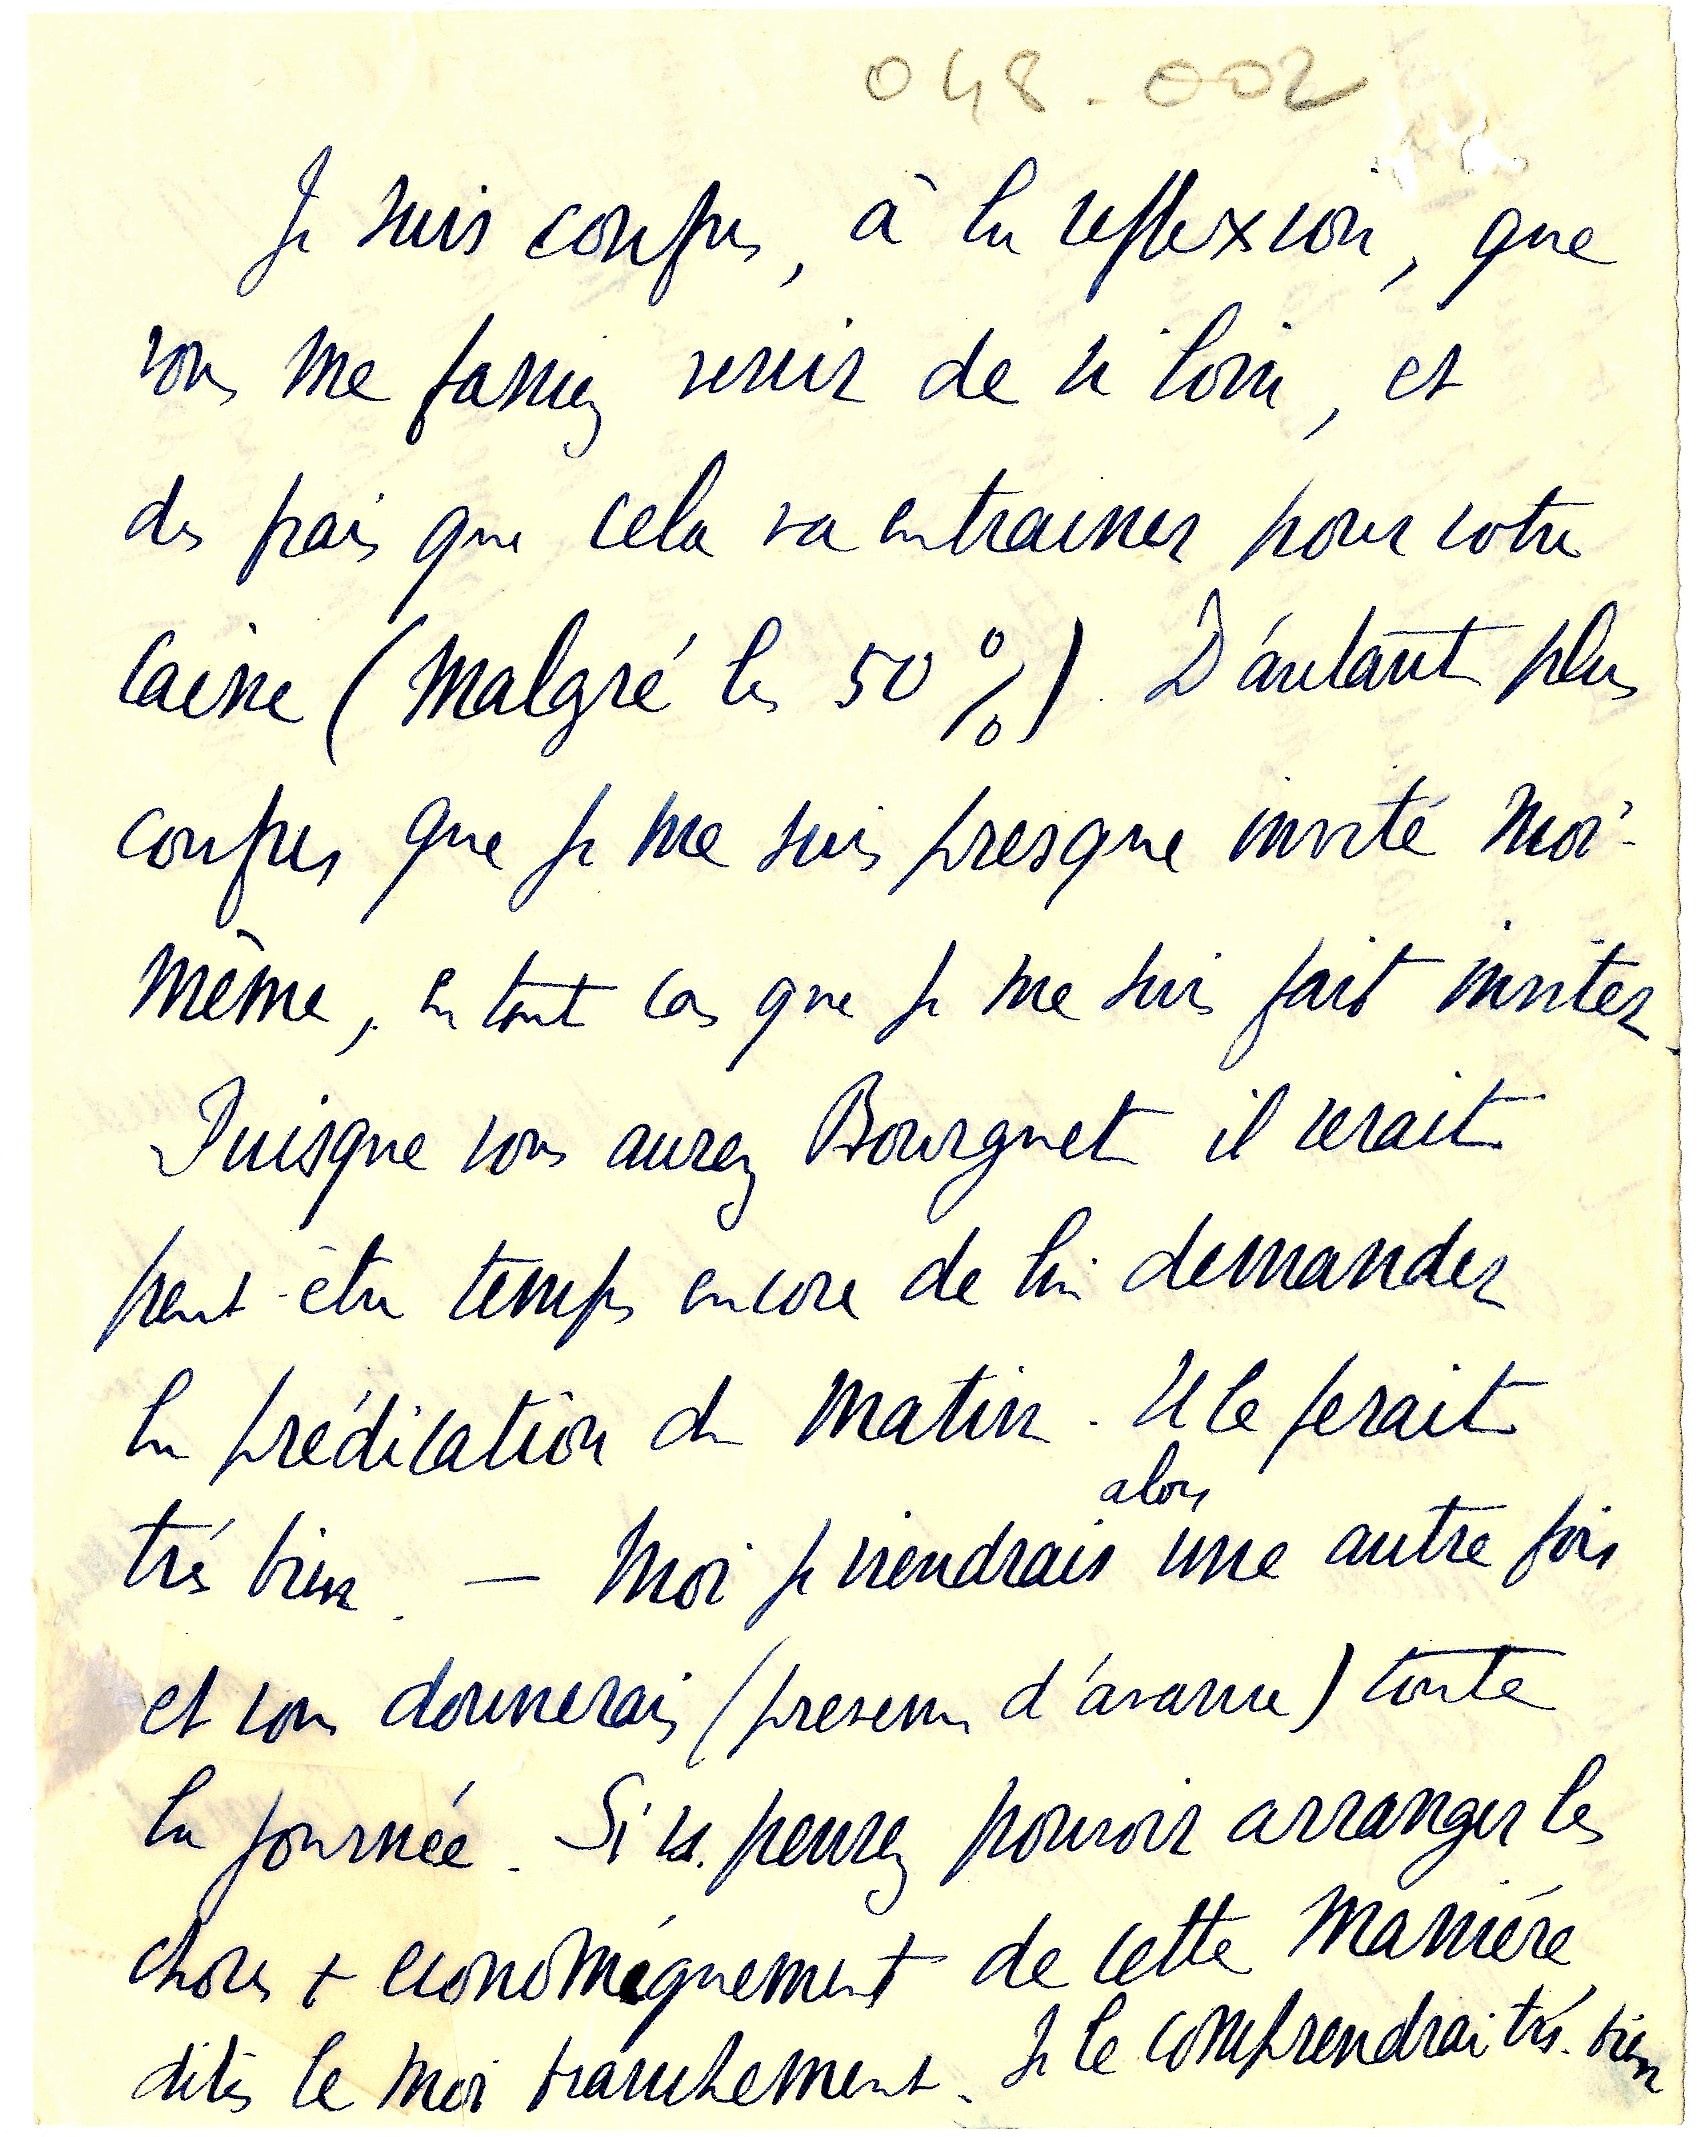 048.002
Je suis confus, à la reflexion, que
vous me fassiez venir de si loin, et
des frais que cela va entrainer pour votre
caisse (malgré les 50%). D'autant plus
confus que je me suis presque invité moi-
même, en tout cas que je me suis fait inviter.
Puisque vous aurez Bourguet il serait
peut-être temps encore de lui demander
la prédication du matin. Il le ferait
très bien. — Moi je viendrais alors une autre fois
et vous donnerais (prevenu d'avance) toute
la journée. Si vs. pensez pouvoir arranger les
choses + economiquement de cette manière
dites le moi franchement. Je le comprendrai très bien